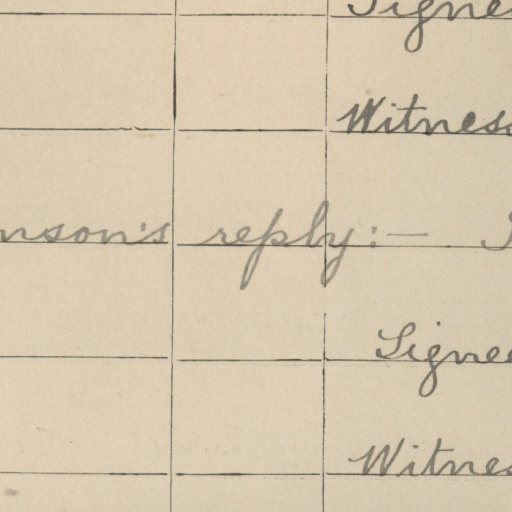 Signe
Witness
nson's reply:—
Signed
Witnes